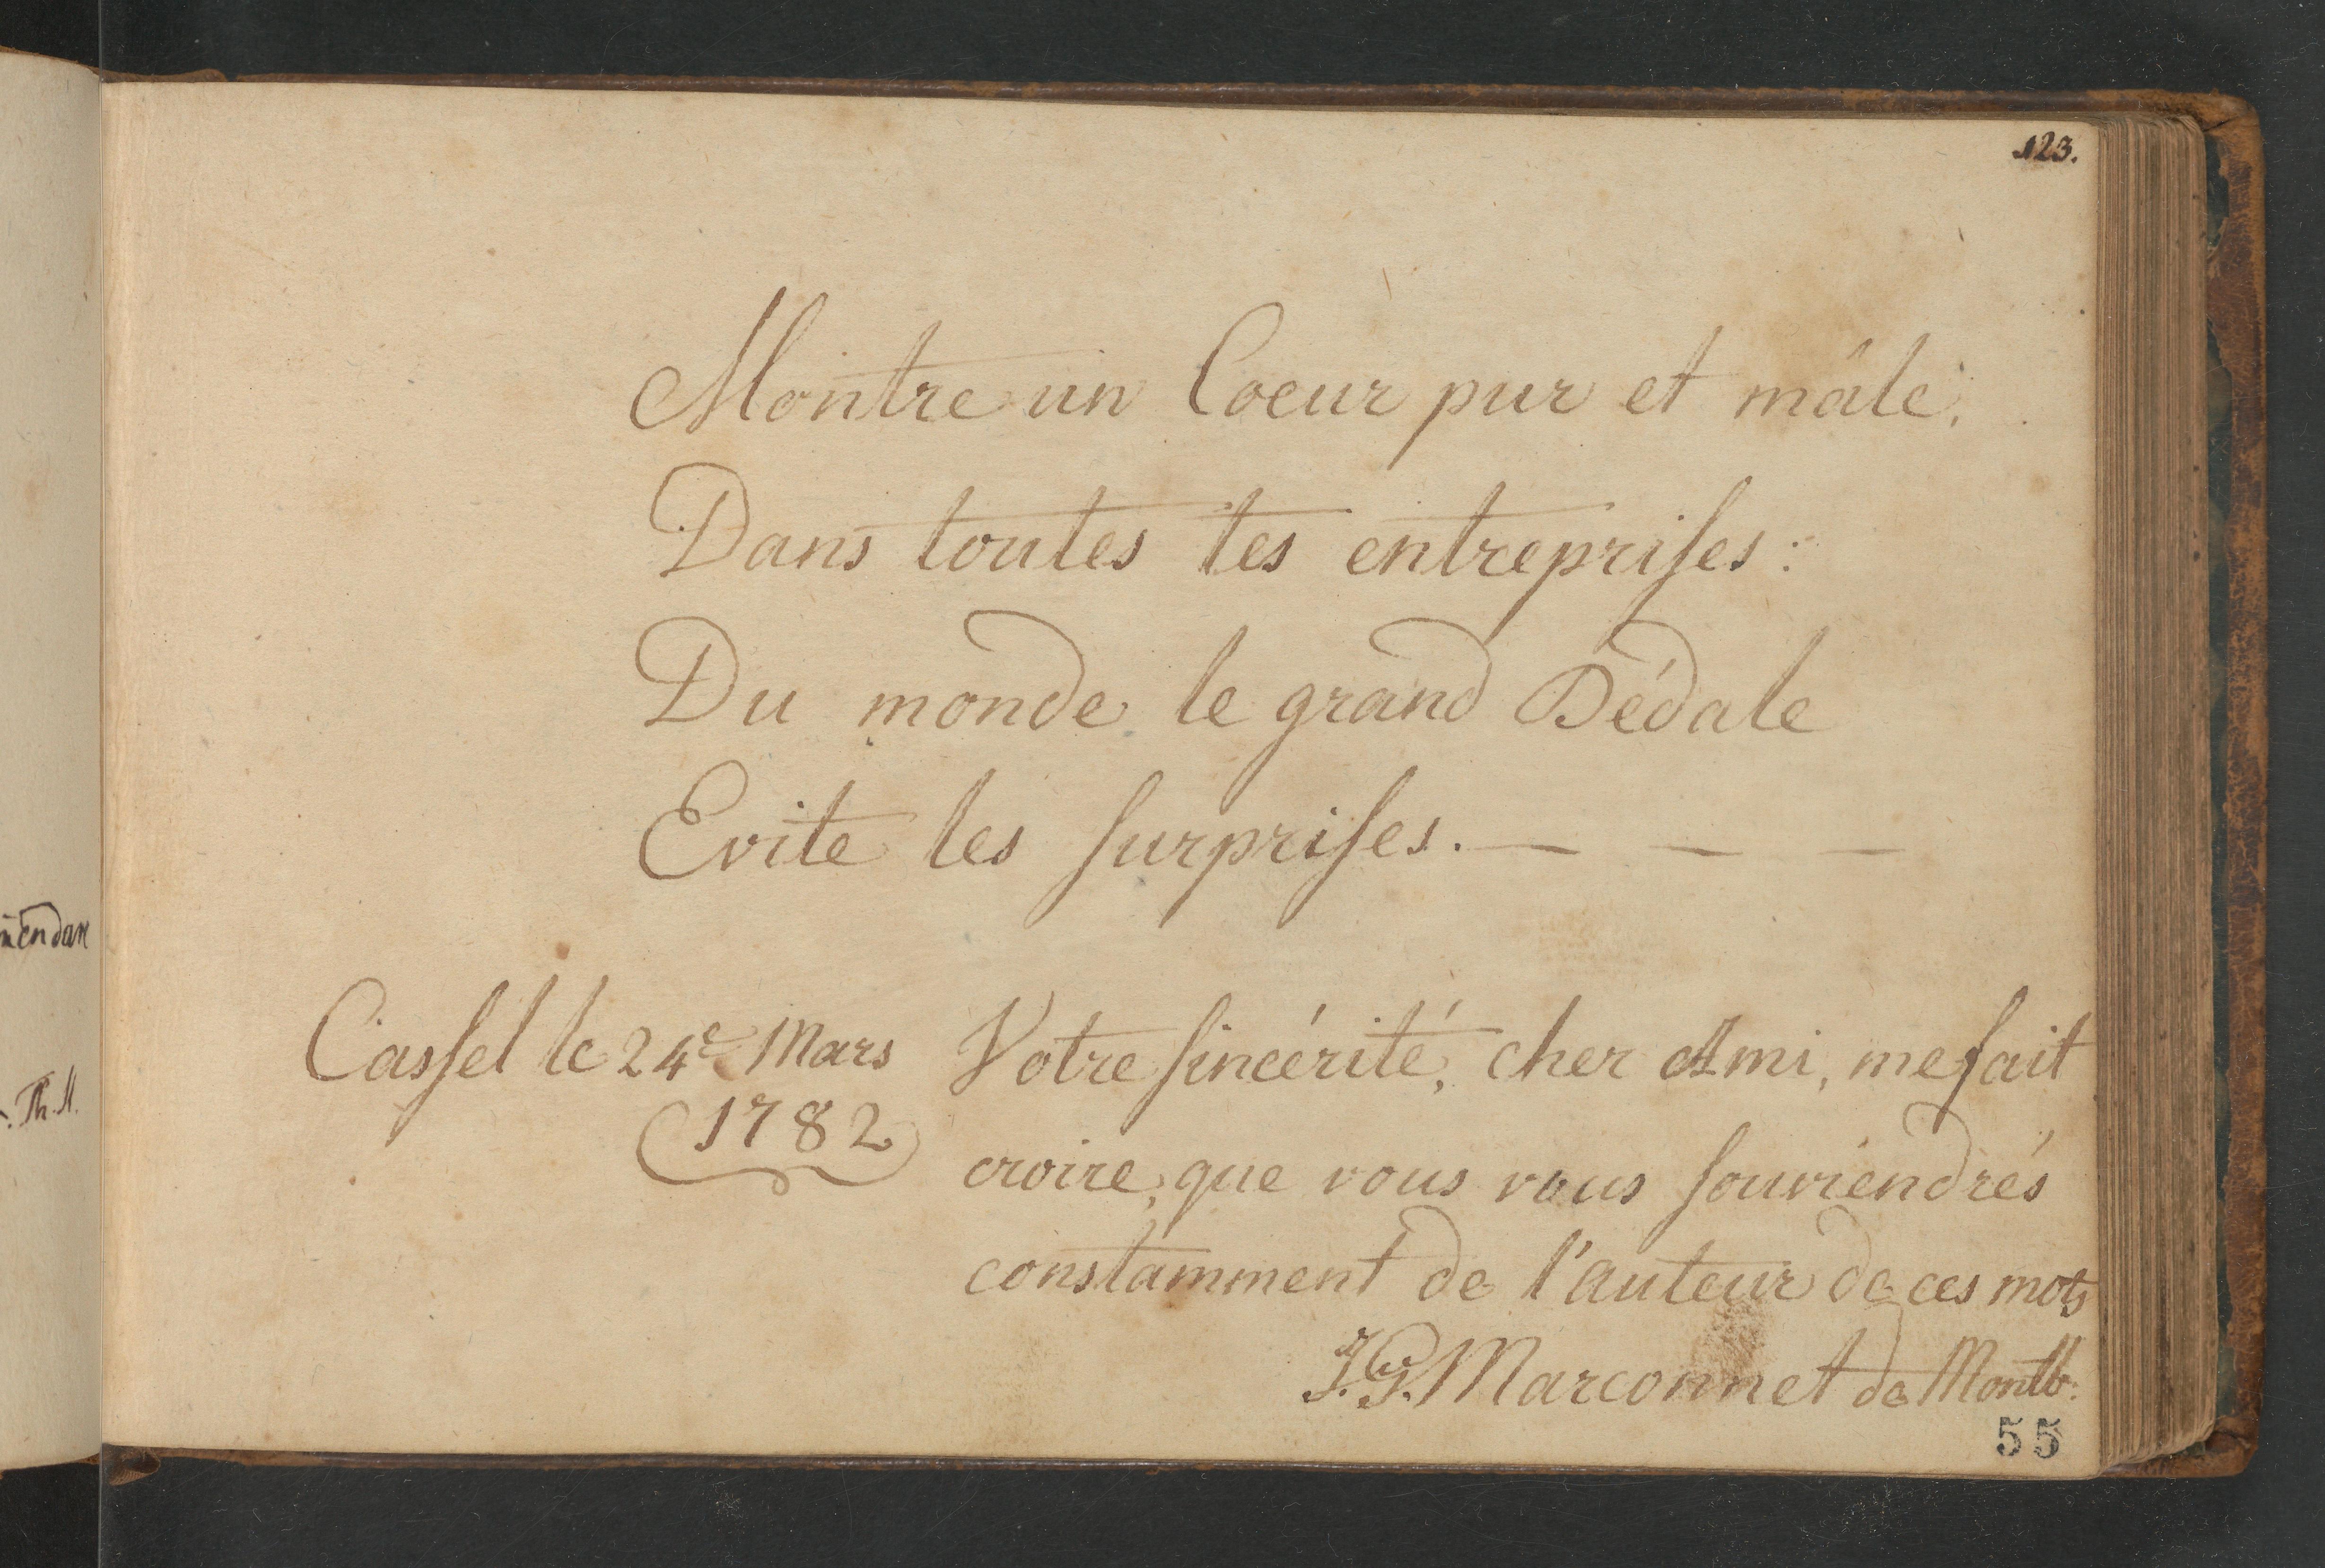 123.
Montre un Coeur pur et mâle,
Dans toutes tes entrepriſes:
Du monde le grand Dédale
Evite les ſurpriſes. — — —
Casſel le 24e Mars
1782
Votre ſincérité, cher Ami, me fait
croire, que vous vous ſouviendrés
constamment de l'auteur de ces mots
J. G. Marconnet de Montb.
55